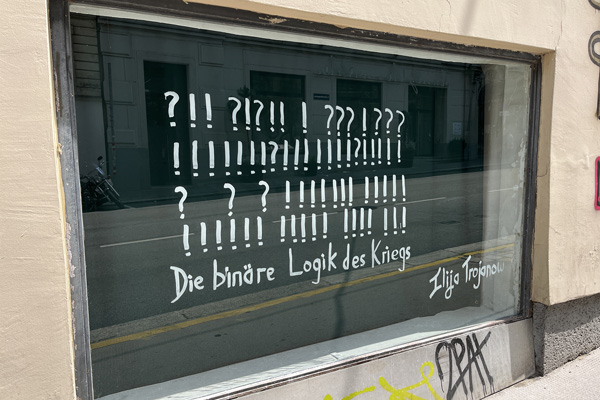 ?!! ?!?!! ! ???!???
!!!!!!!?!!! !!!!?!!!!!
? ? ? !!!!!!! !!!!!
!!!!!! !!!!! !!!! !!!
Die binäre Logik des Kriegs
Ilija Trojanow